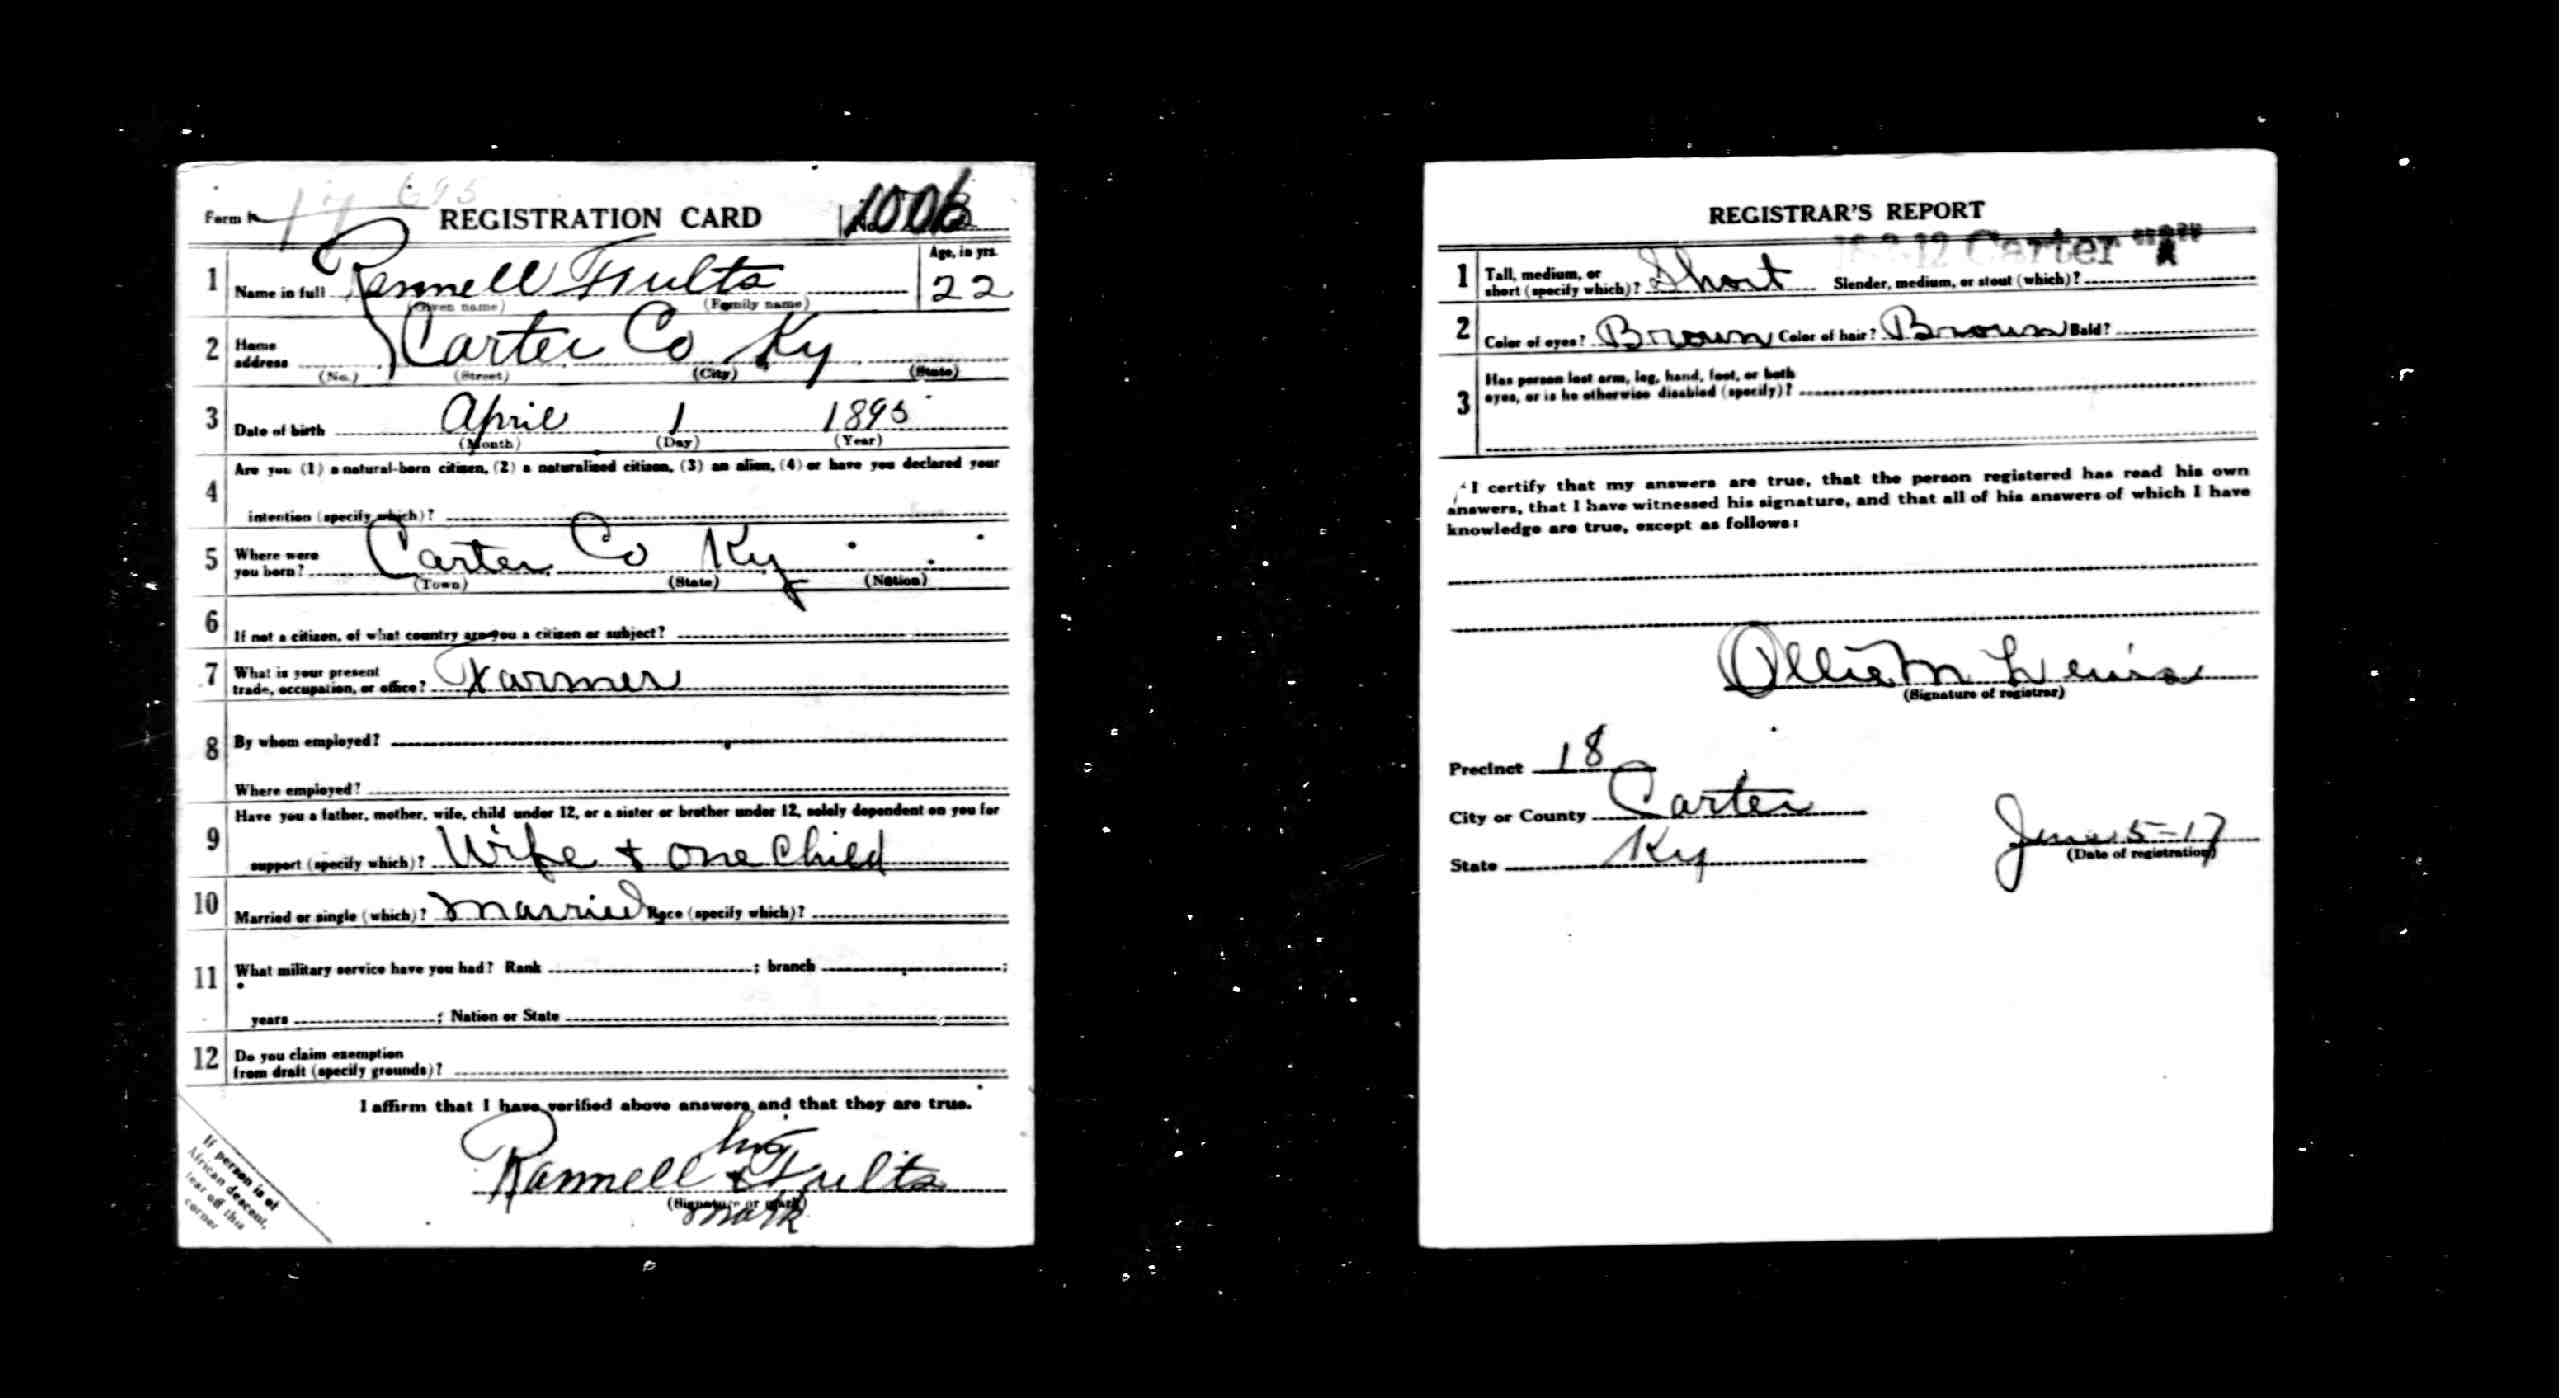 Form 1 17 695 REGISTRATION CARD No. 1006
1 Name in full Rannell Fults Age, in yrs. 22
(Given name) (Family name)
2 Home address Carter Co Ky
(No.) (Street) (City) (State)
3 Date of birth April 1 1895
(Month) (Day) (Year)
Are you (1) a natural-born citizen, (2) a naturalized citizen, (3) an alien, (4) or have you declared your
4
intention (specify which)?
5 Where were you born? Carter Co Ky
(Town) (State) (Nation)
6 If not a citizen, of what country are you a citizen or subject?
7 What is your present
trade, occupation, or office? Farmer
8 By whom employed?
Where employed?
Have you a father, mother, wife, child under 12, or a sister or brother under 12, solely dependent on you for
9 support (specify which)? Wife + one Child
10 Married or single (which)? Married Race (specify which)?
11 What military service have you had? Rank ; branch ;
years ; Nation or State
12 Do you claim exemption
from draft (specify grounds)?
I affirm that I have verified above answers and that they are true.
his
Rannell x Fults
(Signature or mark)
mark
If person is of
African descent,
tear off this
corner
REGISTRAR'S REPORT
12 Carter "A"
1 Tall, medium, or
short (specify which)? Short Slender, medium, or stout (which)?
2 Color of eyes? Brown Color of hair? Brown Bald?
3 Has person lost arm, leg, hand, foot, or both
eyes, or is he otherwise disabled (specify)?
I certify that my answers are true, that the person registered has read his own
answers, that I have witnessed his signature, and that all of his answers of which I have
knowledge are true, except as follows:
Ollie M Lewis
(Signature of registrar)
Precinct 18
City or County Carter
State Ky June 5-17
(Date of registration)